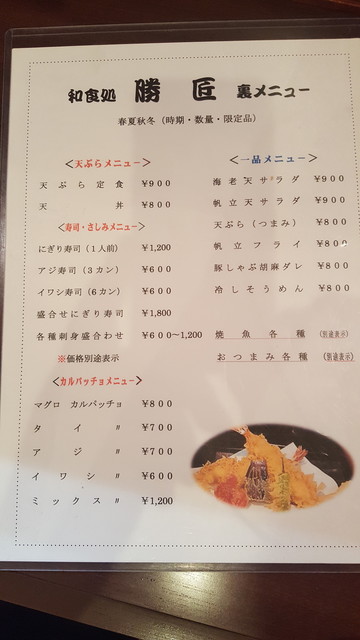 和食処 勝匠 裏メニュー
春夏秋冬（時期・数量・限定品）
＜天ぷらメニュー＞
天ぷら定食 ¥900
天丼 ¥800
＜寿司・さしみメニュー＞
にぎり寿司（1人前） ¥1,200
アジ寿司（3カン） ¥600
イワシ寿司（6カン） ¥600
盛合せにぎり寿司 ¥1,800
各種刺身盛合わせ ¥600〜1,200
※価格別途表示
＜カルパッチョメニュー＞
マグロ カルパッチョ ¥800
タイ 〃 ¥700
アジ 〃 ¥700
イワシ 〃 ¥600
ミックス 〃 ¥1,200
＜一品メニュー＞
海老天サラダ ¥900
帆立天サラダ ¥900
天ぷら（つまみ） ¥800
帆立フライ ¥800
豚しゃぶ胡麻ダレ ¥800
冷しそうめん ¥800
焼魚各種 （別途表示）
おつまみ各種 （別途表示）